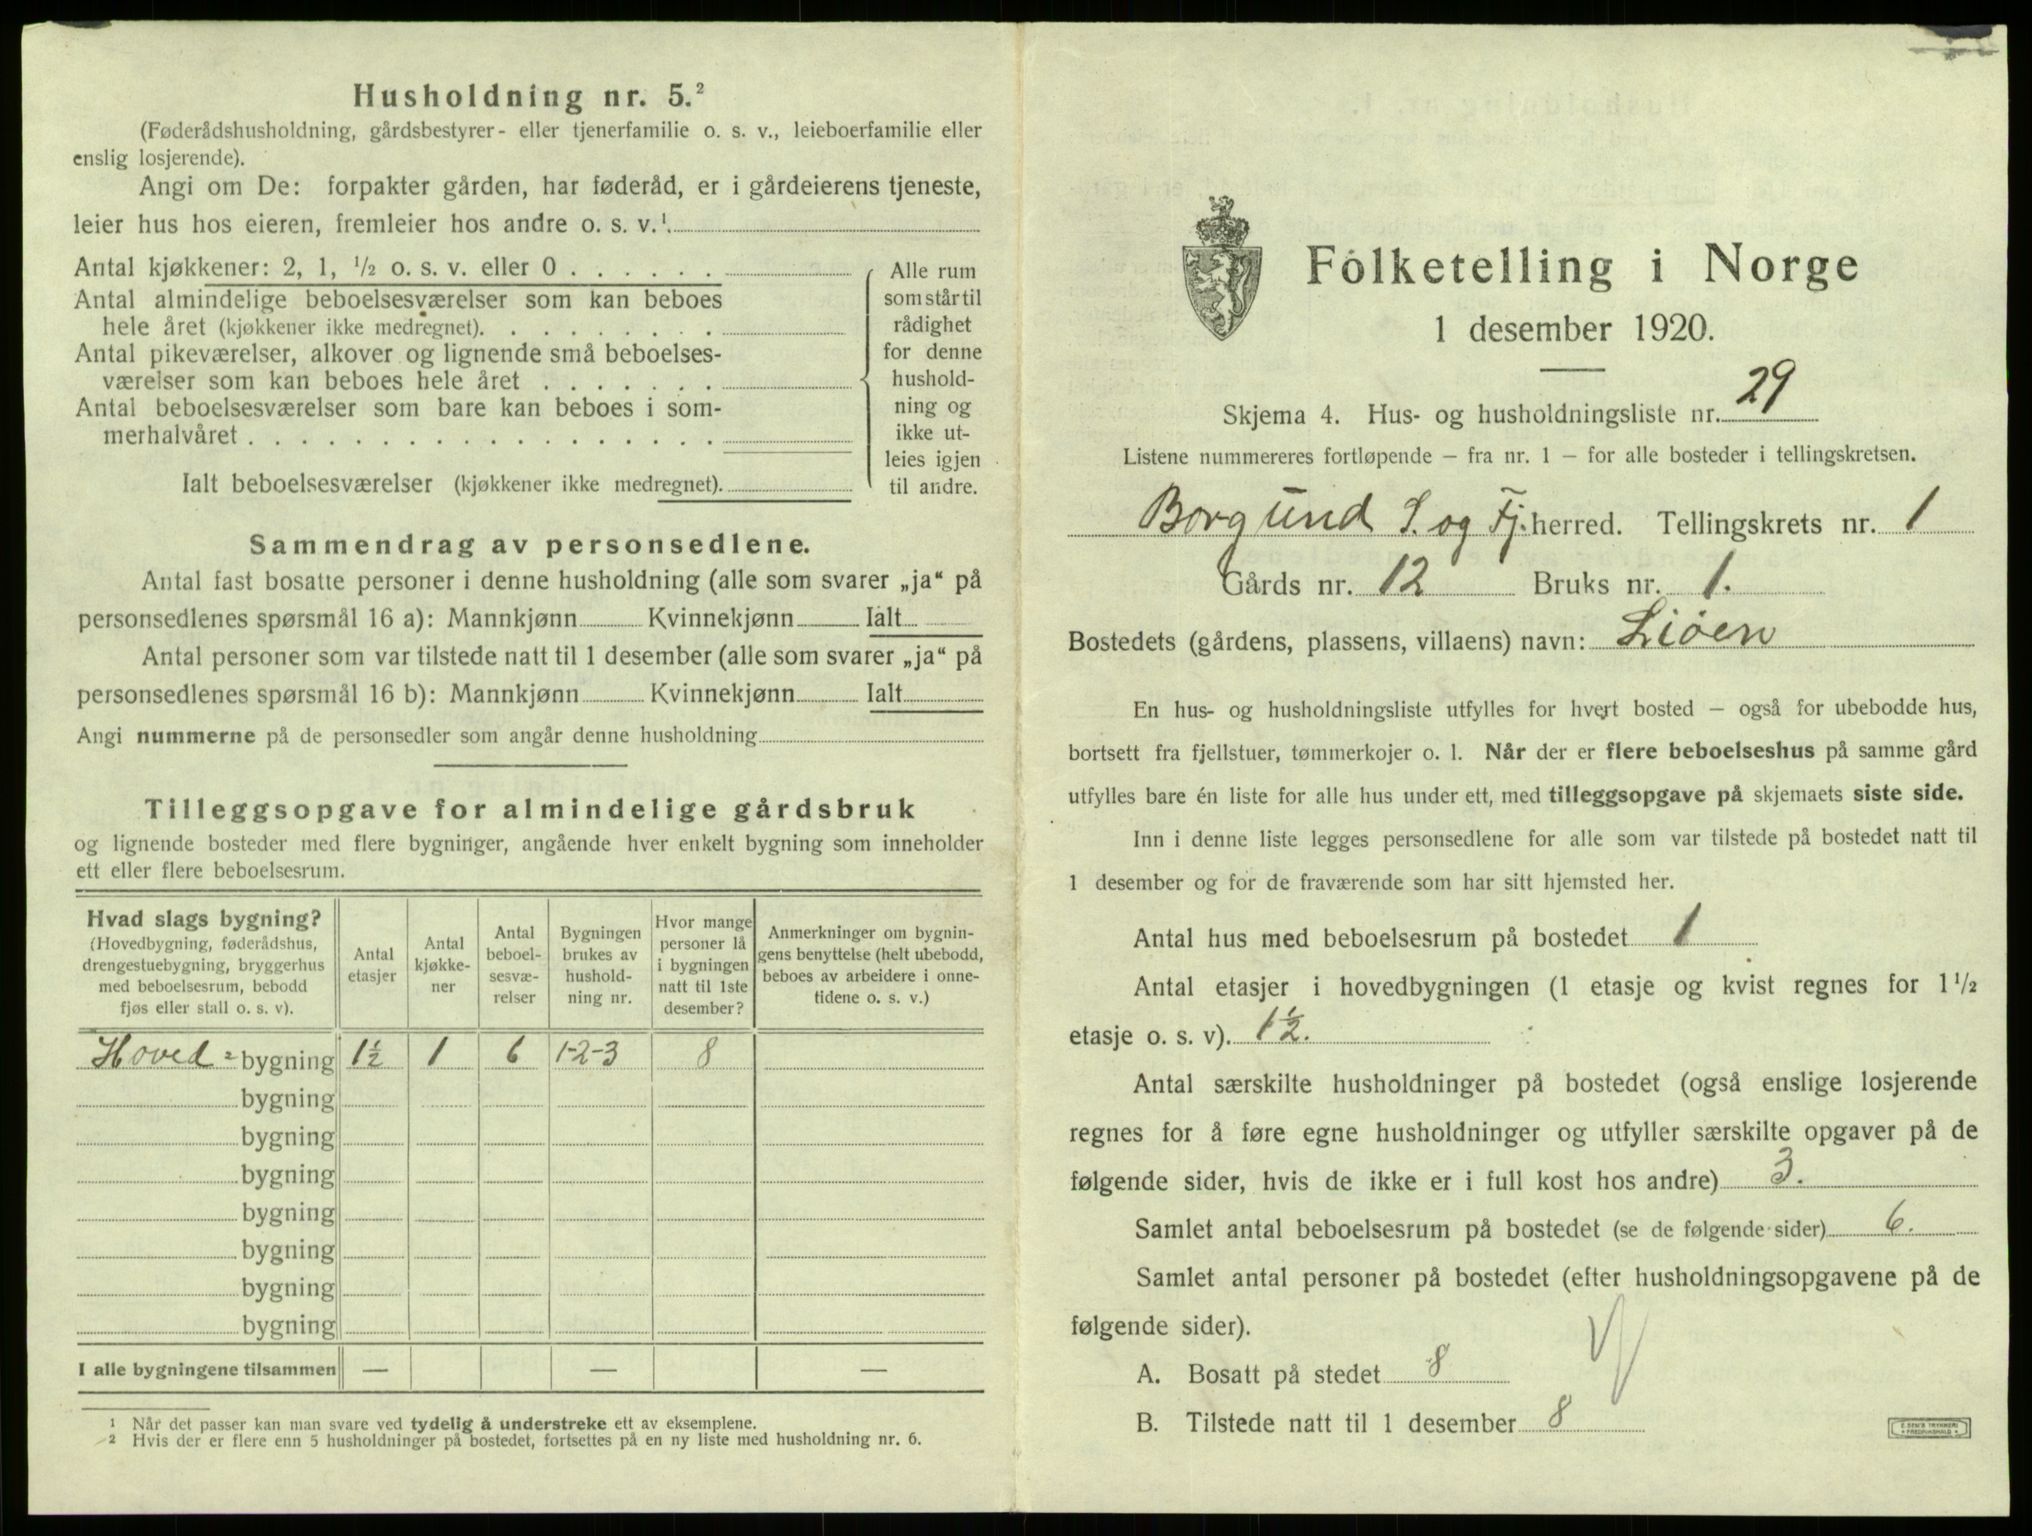 Husholdning nr. 5.²
(Føderådshusholdning, gårdsbestyrer- eller tjenerfamilie o. s. v., leieboerfamilie eller
enslig losjerende).
Angi om De: forpakter gården, har føderåd, er i gårdeierens tjeneste,
leier hus hos eieren, fremleier hos andre o. s. v.¹
Antal kjøkkener: 2, 1, ½ o. s. v. eller 0 . . . . . .
Antal almindelige beboelsesværelser som kan beboes
hele året (kjøkkener ikke medregnet). . . . . . . . .
Antal pikeværelser, alkover og lignende små beboelses-
værelser som kan beboes hele året . . . . . . .
Antal beboelsesværelser som bare kan beboes i som-
merhalvåret . . . . . . . . . . . . . . . . . .
Ialt beboelsesværelser (kjøkkener ikke medregnet).
Alle rum
som står til
rådighet
for denne
hushold-
ning og
ikke ut-
leies igjen
til andre.
Sammendrag av personsedlene.
Antal fast bosatte personer i denne husholdning (alle som svarer „ja“ på
personsedlenes spørsmål 16 a): Mannkjønn Kvinnekjønn Ialt
Antal personer som var tilstede natt til 1 desember (alle som svarer „ja“ på
personsedlenes spørsmål 16 b): Mannkjønn Kvinnekjønn Ialt
Angi nummerne på de personsedler som angår denne husholdning
Tilleggsopgave for almindelige gårdsbruk
og lignende bosteder med flere bygninger, angående hver enkelt bygning som inneholder
ett eller flere beboelsesrum.
Hvad slags bygning?
(Hovedbygning, føderådshus,
drengestuebygning, bryggerhus
med beboelsesrum, bebodd
fjøs eller stall o. s. v).
Antal
etasjer
Antal
kjøkke-
ner
Antal
beboel-
sesvæ-
relser
Bygningen
brukes av
hushold-
ning nr.
Hvor mange
personer lå
i bygningen
natt til 1ste
desember?
Anmerkninger om bygnin-
gens benyttelse (helt ubebodd,
beboes av arbeidere i onne-
tidene o. s. v.)
Hoved- bygning 1½ 1 6 1-2-3 8
bygning
bygning
bygning
bygning
bygning
bygning
bygning
I alle bygningene tilsammen — — —
¹ Når det passer kan man svare ved tydelig å understreke ett av eksemplene.
² Hvis der er flere enn 5 husholdninger på bostedet, fortsettes på en ny liste med husholdning nr. 6.
Folketelling i Norge
1 desember 1920.
Skjema 4. Hus- og husholdningsliste nr. 29
Listene nummereres fortløpende — fra nr. 1 — for alle bosteder i tellingskretsen.
Borgund S. og Fj. herred. Tellingskrets nr. 1
Gårds nr. 12 Bruks nr. 1.
Bostedets (gårdens, plassens, villaens) navn: Liøen
En hus- og husholdningsliste utfylles for hvert bosted — også for ubebodde hus,
bortsett fra fjellstuer, tømmerkojer o. l. Når der er flere beboelseshus på samme gård
utfylles bare én liste for alle hus under ett, med tilleggsopgave på skjemaets siste side.
Inn i denne liste legges personsedlene for alle som var tilstede på bostedet natt til
1 desember og for de fraværende som har sitt hjemsted her.
Antal hus med beboelsesrum på bostedet 1
Antal etasjer i hovedbygningen (1 etasje og kvist regnes for 1½
etasje o. s. v). 1½.
Antal særskilte husholdninger på bostedet (også enslige losjerende
regnes for å føre egne husholdninger og utfyller særskilte opgaver på de
følgende sider, hvis de ikke er i full kost hos andre) 3.
Samlet antal beboelsesrum på bostedet (se de følgende sider) 6.
Samlet antal personer på bostedet (efter husholdningsopgavene på de
følgende sider).
A. Bosatt på stedet 8
B. Tilstede natt til 1 desember 8
E. SEM'S TRYKKERI
FREDRIKSHALD